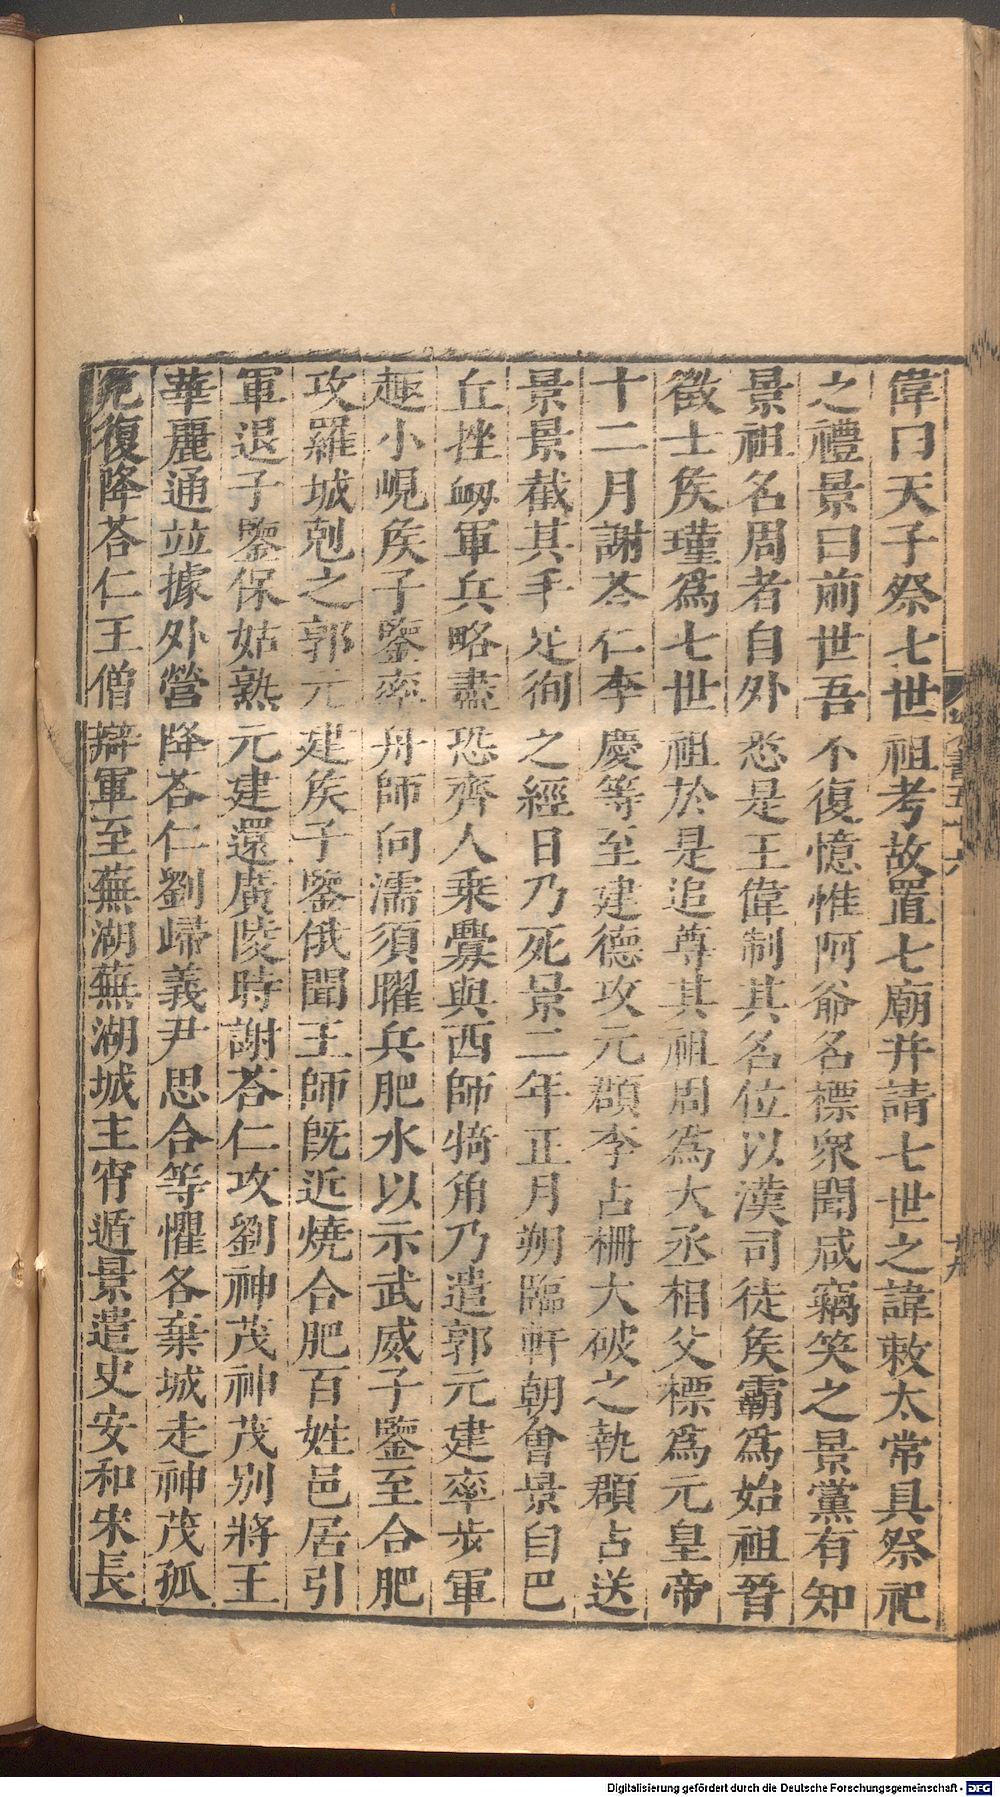 偉曰天子祭七世祖考故置七廟并請七世之諱敕太常具祭祀
之禮景曰前世吾不復憶惟阿爺名標衆聞咸竊笑之景黨有知
景祖名周者自外悉是王偉制其名位以漢司徒矦霸爲始祖晉
徵士矦瑾爲七世祖於是追尊其祖周爲大丞相父標爲元皇帝
十二月謝荅仁李慶等至建德攻元頵李占柵大破之執頵占送
景景截其手足徇之經日乃死景二年正月朔臨軒朝會景自巴
丘挫衂軍兵略盡恐齊人乘釁與西師犄角乃遣郭元建率步軍
趣小峴矦子鑒率舟師向濡須曜兵肥水以示武威子鑒至合肥
攻羅城剋之郭元建矦子鑒俄聞王師旣近燒合肥百姓邑居引
軍退子鑒保姑熟元建還廣陵時謝荅仁攻劉神茂神茂別將王
華麗通竝據外營降荅仁劉歸義尹思合等懼各棄城走神茂孤
危復降荅仁王僧辯軍至蕪湖蕪湖城主宵遁景遣史安和宋長
梁書五十六
十九
Digitalisierung gefördert durch die Deutsche Forschungsgemeinschaft - DFG